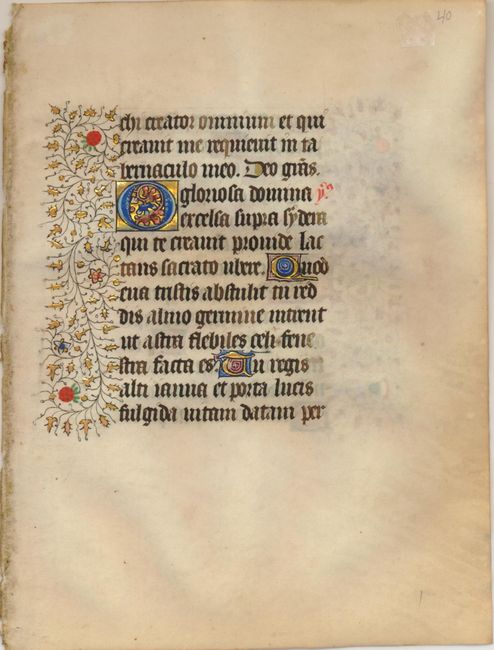 40
chi creator omnium et qui
creauit me requieuit in ta
bernaculo meo. Deo gr̃as.
O gloriosa domina
excelsa supra sydera
qui te creauit prouide lac
tans sacrato ubere. Quod
eua tristis abstulit tu red
dis almo germine intrent
ut astra flebiles celi fene
stra facta es. Tu regis
alti ianua et porta lucis
fulgida uitam datam per